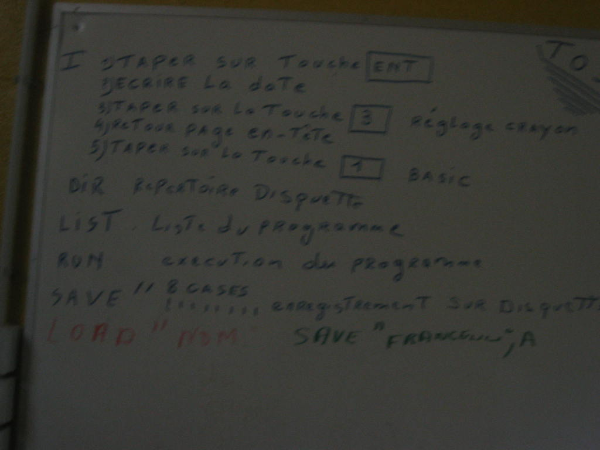 TO
I 1) TAPER SUR Touche ENT
2) ECRIRE La date
3) TAPER sur La Touche 3 Réglage crayon
4) Retour page en-tête
5) TAPER sur La Touche 1 BASIC
DIR REPERTOIRE DISQUETTE
LIST. Liste du programme
RUN execution du programme
SAVE " 8 CASES
........ enregistrement SUR DISQUETT
LOAD " NOM SAVE " ",A